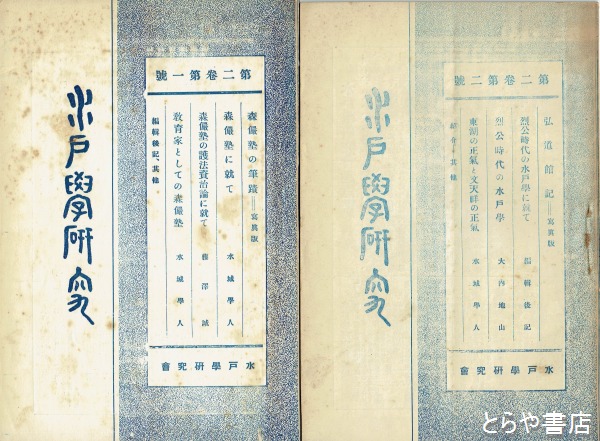 水戸學研究
第二卷第一號
森儼塾の筆蹟――寫眞版
森儼塾に就て 水城學人
森儼塾の護法資治論に就て 雨澤誠
教育家としての森儼塾 水城學人
編輯後記、其他
水戸學研究會
水戸學研究
第二卷第二號
弘道館記――寫眞版
烈公時代の水戸學に就て 編輯後記
烈公時代の水戸學 大內地山
東湖の正氣と文天祥の正氣 水城學人
紹介・其他
水戸學研究會
とらや書店